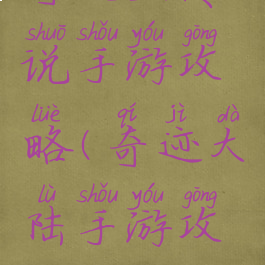 shuō shǒu yóu gōng
说手游攻
lüè qí jì dà
略(奇迹大
lù shǒu yóu gōng
陆手游攻